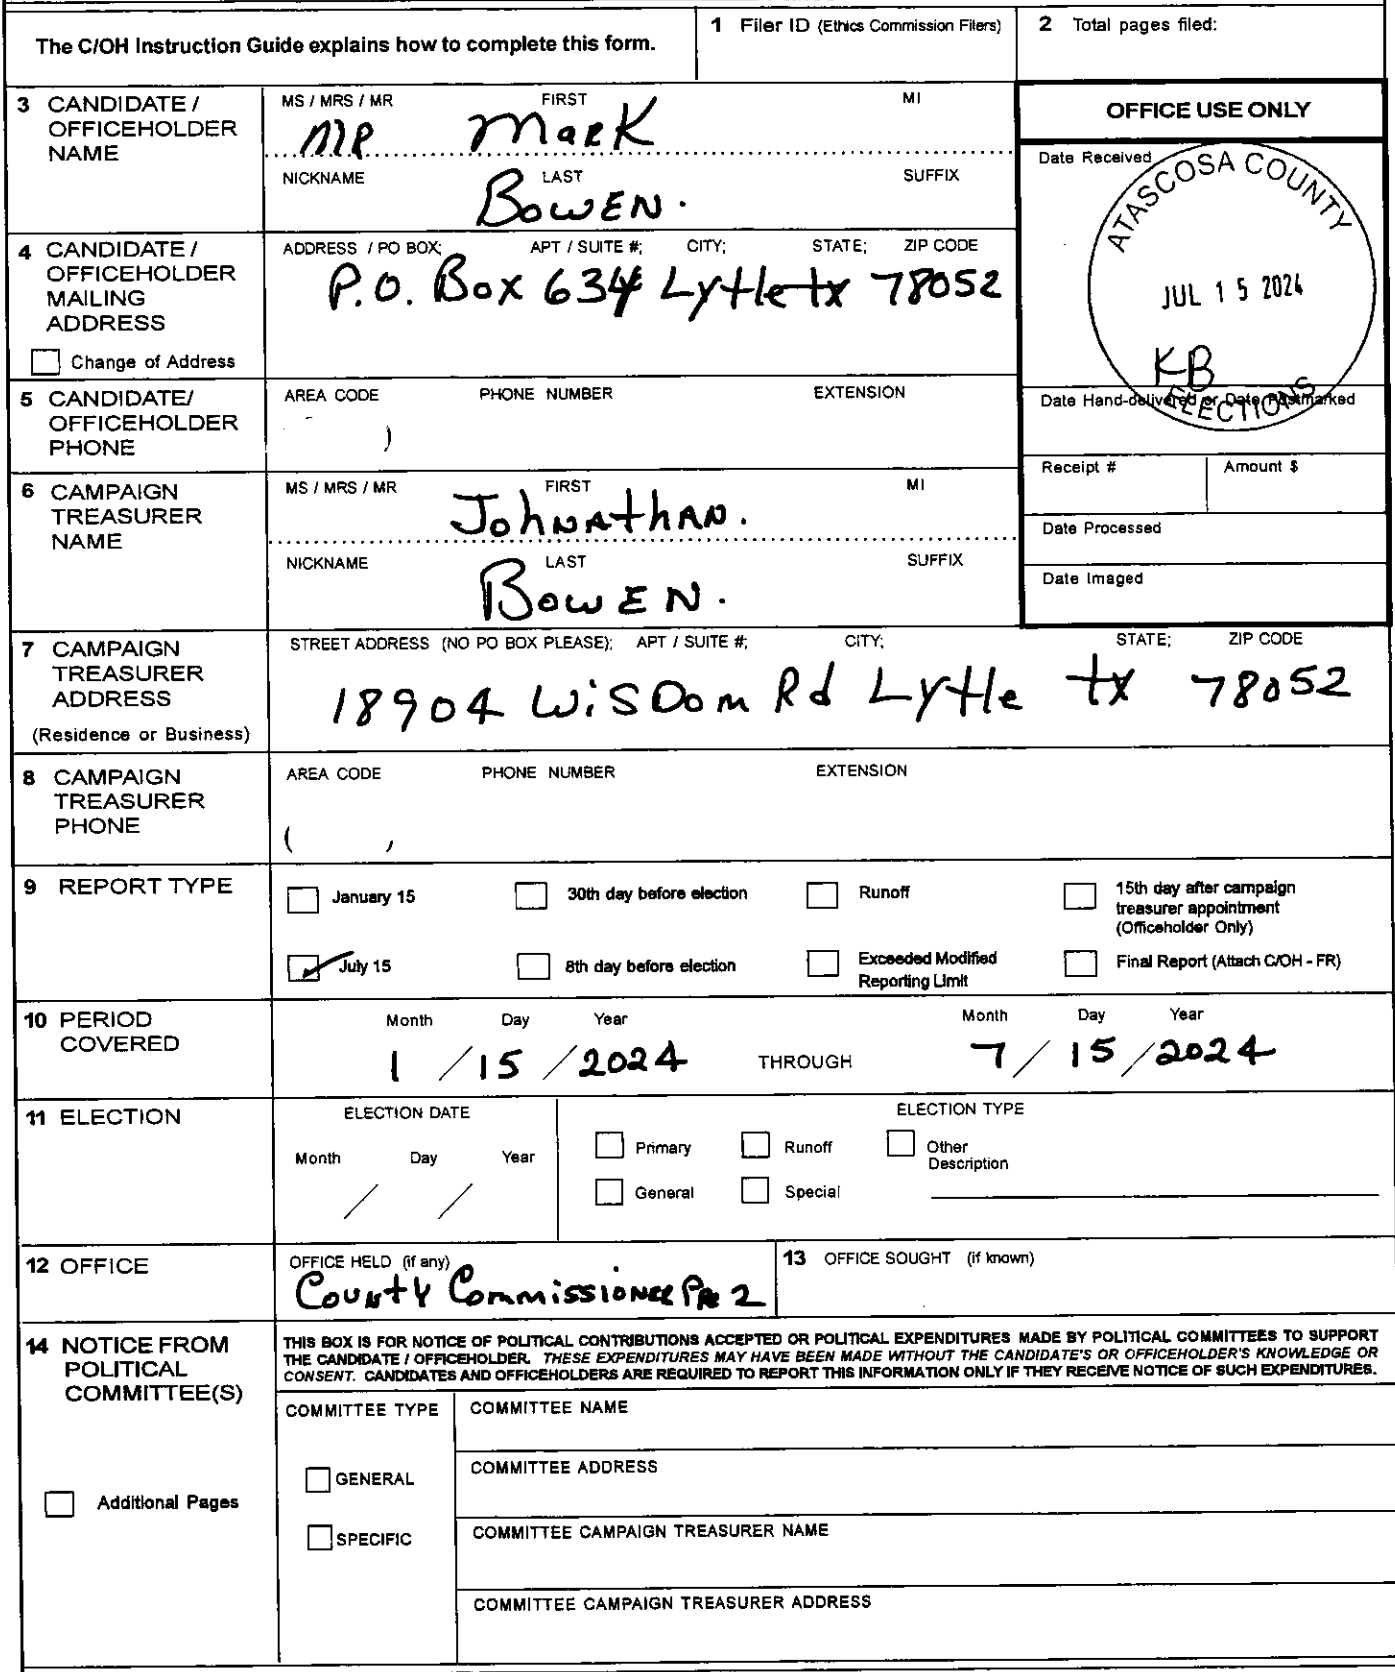 The C/OH Instruction Guide explains how to complete this form.
1 Filer ID (Ethics Commission Filers)
2 Total pages filed:
3 CANDIDATE / OFFICEHOLDER NAME
MS / MRS / MR FIRST MI
MR Mark
NICKNAME LAST SUFFIX
BOWEN.
OFFICE USE ONLY
Date Received
ATASCOSA COUNTY
JUL 15 2024
KB
ELECTIONS
Date Hand-delivered or Date Postmarked
Receipt # Amount $
Date Processed
Date Imaged
4 CANDIDATE / OFFICEHOLDER MAILING ADDRESS
Change of Address
ADDRESS / PO BOX; APT / SUITE #; CITY; STATE; ZIP CODE
P.O. Box 634 Lytle tx 78052
5 CANDIDATE/ OFFICEHOLDER PHONE
AREA CODE PHONE NUMBER EXTENSION
)
6 CAMPAIGN TREASURER NAME
MS / MRS / MR FIRST MI
Johnathan.
NICKNAME LAST SUFFIX
BOWEN.
7 CAMPAIGN TREASURER ADDRESS
(Residence or Business)
STREET ADDRESS (NO PO BOX PLEASE); APT / SUITE #; CITY; STATE; ZIP CODE
18904 WiSDom Rd Lytle tx 78052
8 CAMPAIGN TREASURER PHONE
AREA CODE PHONE NUMBER EXTENSION
( )
9 REPORT TYPE
January 15 30th day before election Runoff 15th day after campaign treasurer appointment (Officeholder Only)
July 15 8th day before election Exceeded Modified Reporting Limit Final Report (Attach C/OH - FR)
10 PERIOD COVERED
Month Day Year Month Day Year
1 / 15 / 2024 THROUGH 7 / 15 / 2024
11 ELECTION
ELECTION DATE
Month Day Year
/ /
ELECTION TYPE
Primary Runoff Other Description
General Special
12 OFFICE
OFFICE HELD (if any)
County Commissioner 2
13 OFFICE SOUGHT (if known)
14 NOTICE FROM POLITICAL COMMITTEE(S)
Additional Pages
THIS BOX IS FOR NOTICE OF POLITICAL CONTRIBUTIONS ACCEPTED OR POLITICAL EXPENDITURES MADE BY POLITICAL COMMITTEES TO SUPPORT
THE CANDIDATE / OFFICEHOLDER. THESE EXPENDITURES MAY HAVE BEEN MADE WITHOUT THE CANDIDATE'S OR OFFICEHOLDER'S KNOWLEDGE OR
CONSENT. CANDIDATES AND OFFICEHOLDERS ARE REQUIRED TO REPORT THIS INFORMATION ONLY IF THEY RECEIVE NOTICE OF SUCH EXPENDITURES.
COMMITTEE TYPE
GENERAL
SPECIFIC
COMMITTEE NAME
COMMITTEE ADDRESS
COMMITTEE CAMPAIGN TREASURER NAME
COMMITTEE CAMPAIGN TREASURER ADDRESS